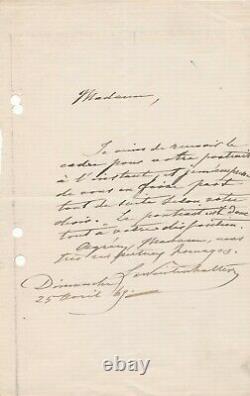 Madame,
Je viens de recevoir le
cadre pour votre portrait
à l'instant et je m'empresse
de vous en faire part
tout de suite selon votre
désir. Le portrait est donc
tout à votre disposition.
Agréez, Madame, mes
très respectueux hommages.
Dimanche
25 avril 69.
© ebay.com